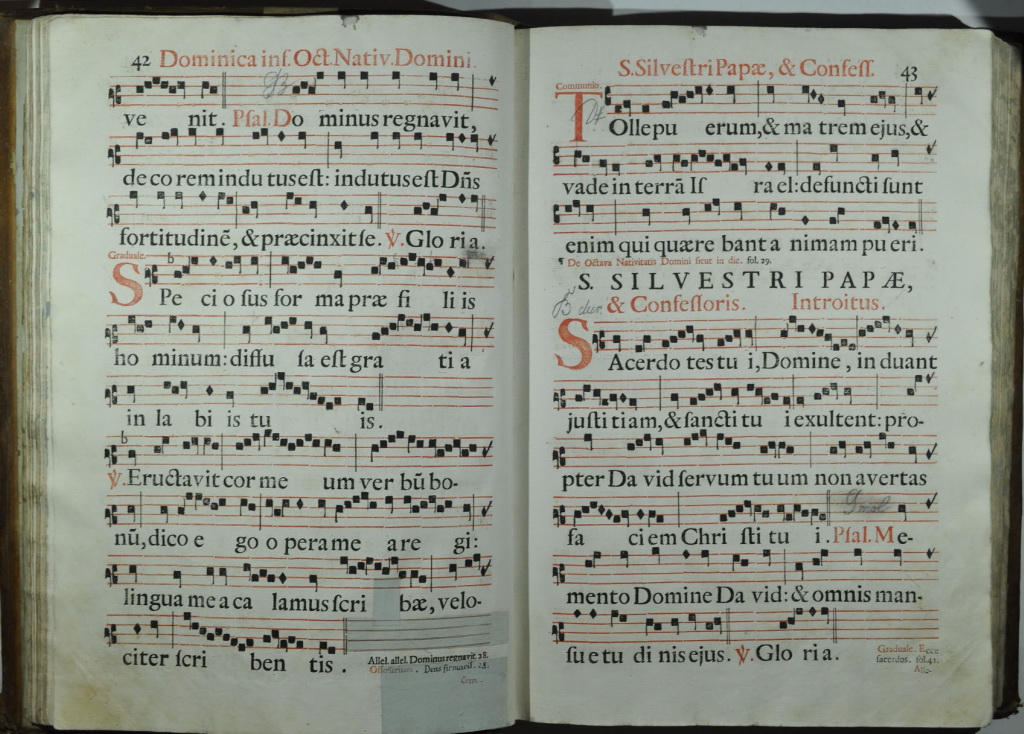 42 Dominica inſ. Oct. Nativ. Domini.
ve nit. Pſal. Do minus regnavit,
de co rem indu tus eſt: indutus eſt Dñs
fortitudinē, & præcinxit ſe. ℣. Glo ri a.
Graduale.
SPe ci o ſus for ma præ fi li is
ho minum: diffu ſa eſt gra ti a
in la bi is tu is.
℣. Eructavit cor me um ver bū bo-
nū, dico e go o pera me a re gi:
lingua me a ca lamus ſcri bæ, velo-
citer ſcri ben tis.
Allel. allel. Dominus regnavit. 28.
Offertorium. Deus firmavit. 25.
Com-
S. Silveſtri Papæ, & Confeſſ. 43
Communio.
TOlle pu erum, & ma trem ejus, &
vade in terrā Iſ ra el: defuncti ſunt
enim qui quære bant a nimam pu eri.
¶ De Octava Nativitatis Domini ſicut in die. fol. 29.
S. SILVESTRI PAPÆ,
& Confeſſoris. Introitus.
SAcerdo tes tu i, Domine, in duant
juſti tiam, & ſancti tu i exultent: pro-
pter Da vid ſervum tu um non avertas
fa ci em Chri ſti tu i. Pſal. Me-
mento Domine Da vid: & omnis man-
ſu e tu di nis ejus. ℣. Glo ri a.
Graduale. Ecce
ſacerdos. fol. 41.